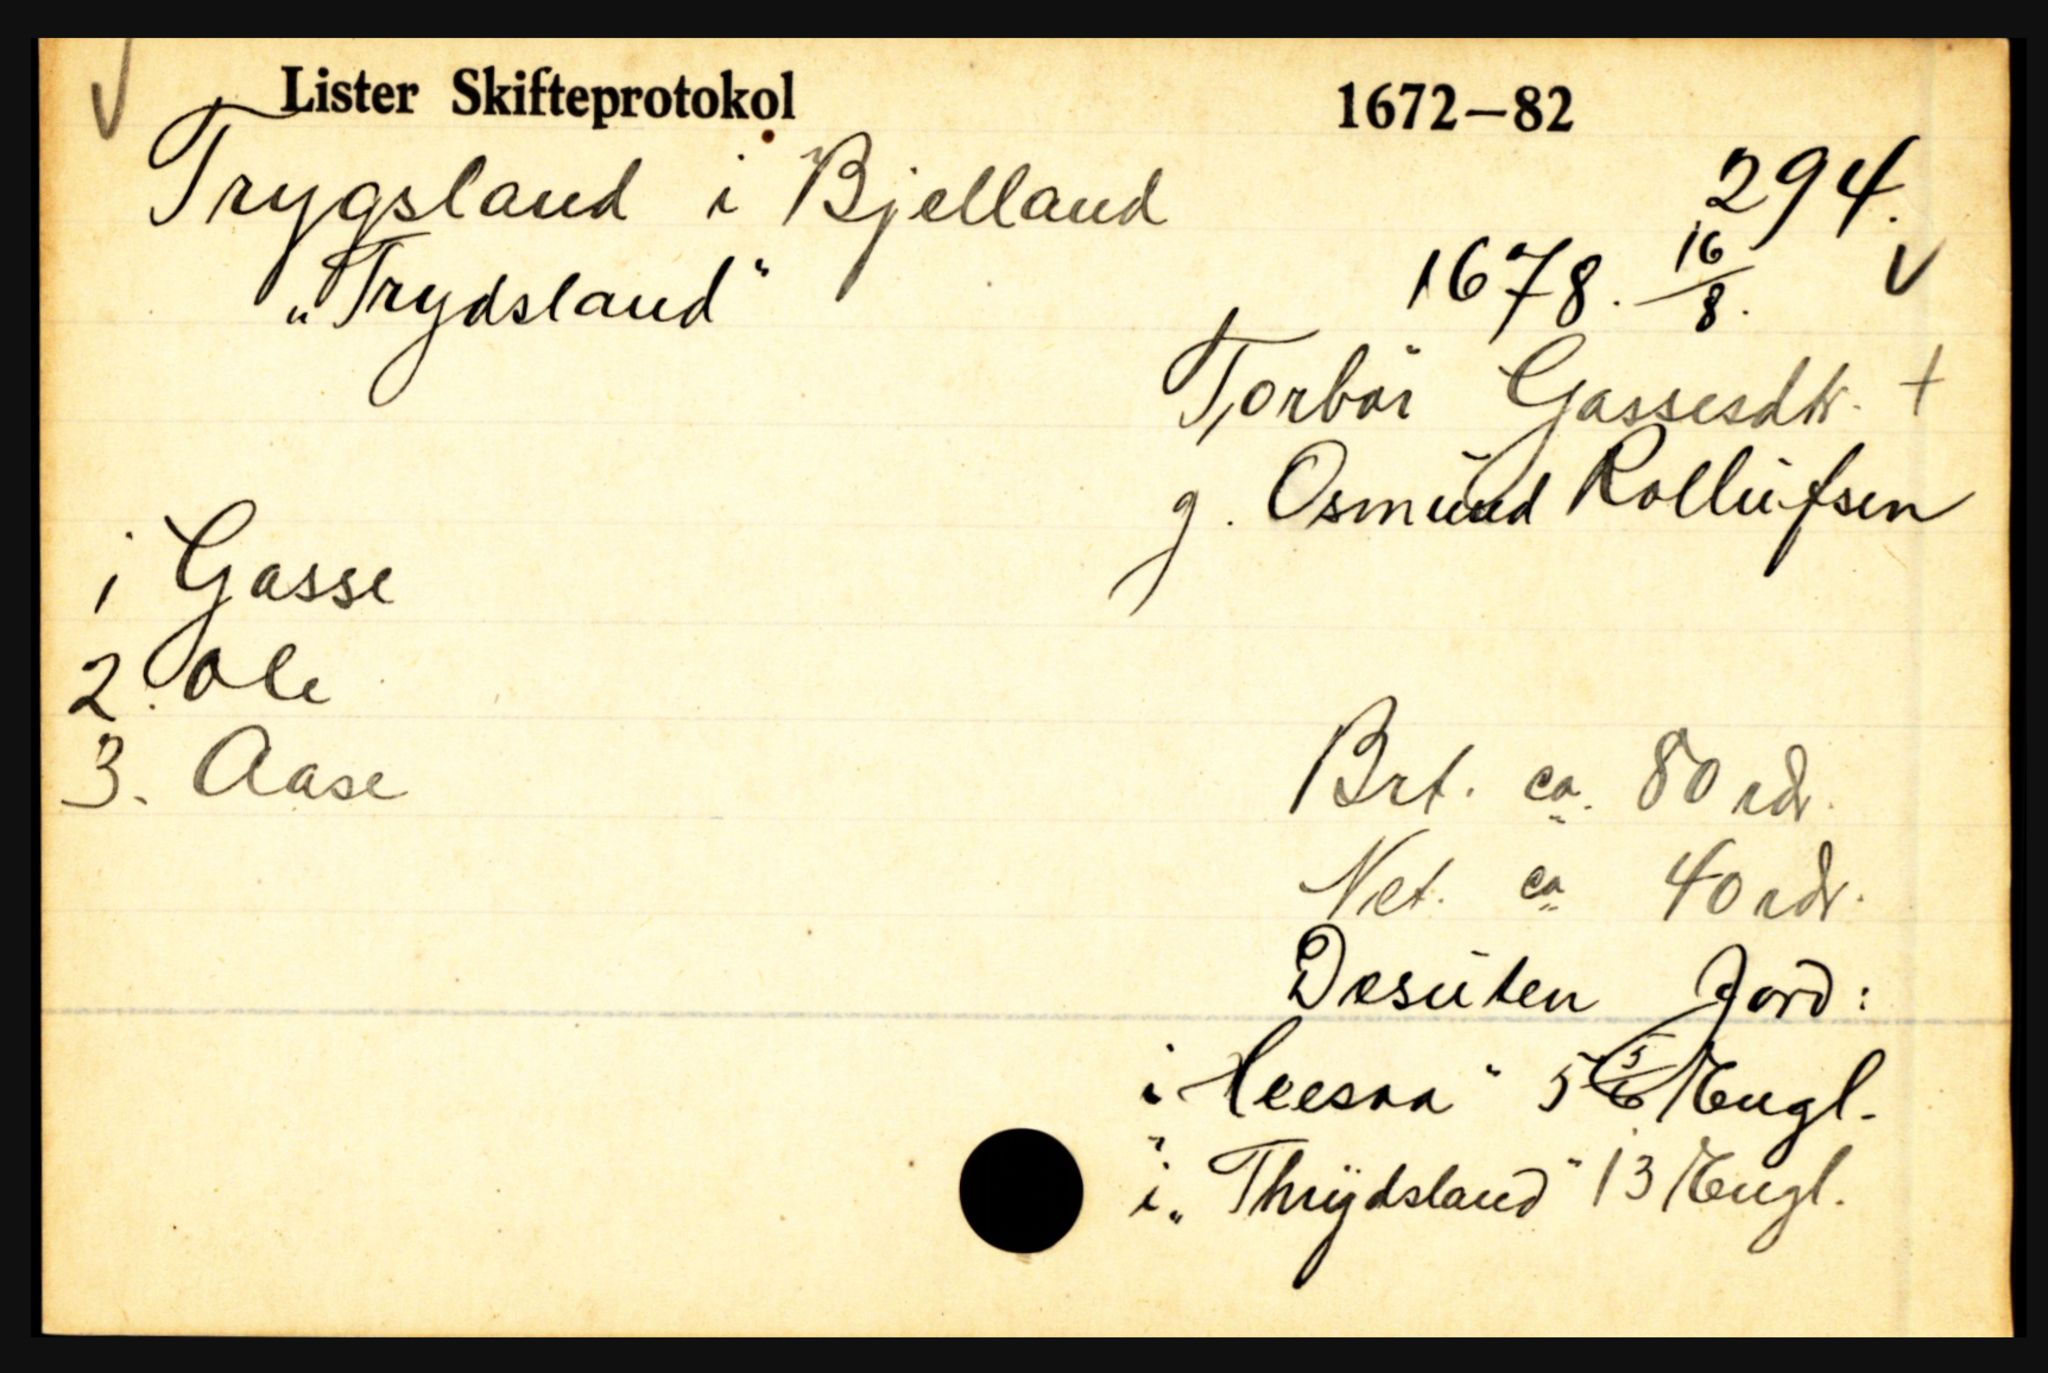 Lister Skifteprotokol 1672–82
Trygsland i Bjelland 294.
„Trydsland“ 1678. 16/8.
Torbör Gassesdtr. +
g. Osmünd Rollüfsen
1 Gasse
2. Ole
3. Aase
Brt. ca. 80 rdr.
Net. ca 40 rdr.
Desüten Jord:
i Heesaa“ 5 5/6 Engl.
i „Thrÿdsland“ 13 Engl.